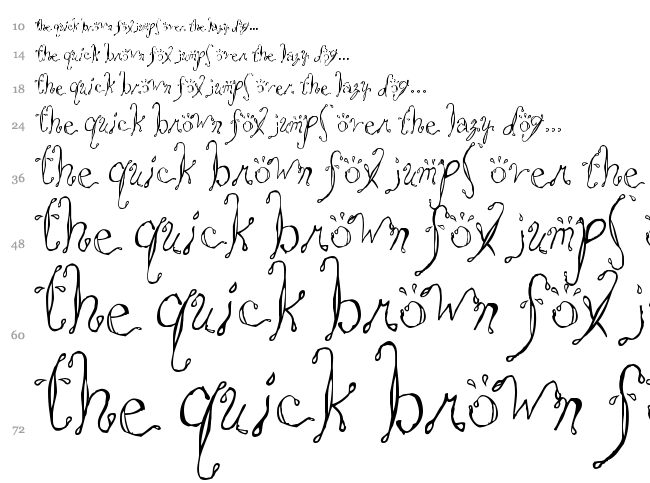 10 the quick bröwn föx jumps över the lazy dög...
14 the quick bröwn föx jumps över the lazy dög...
18 the quick bröwn föx jumps över the lazy dög...
24 the quick bröwn föx jumps över the lazy dög...
36 the quick bröwn föx jumps över the
48 the quick bröwn föx jumps
60 the quick bröwn föx j
72 the quick bröwn f